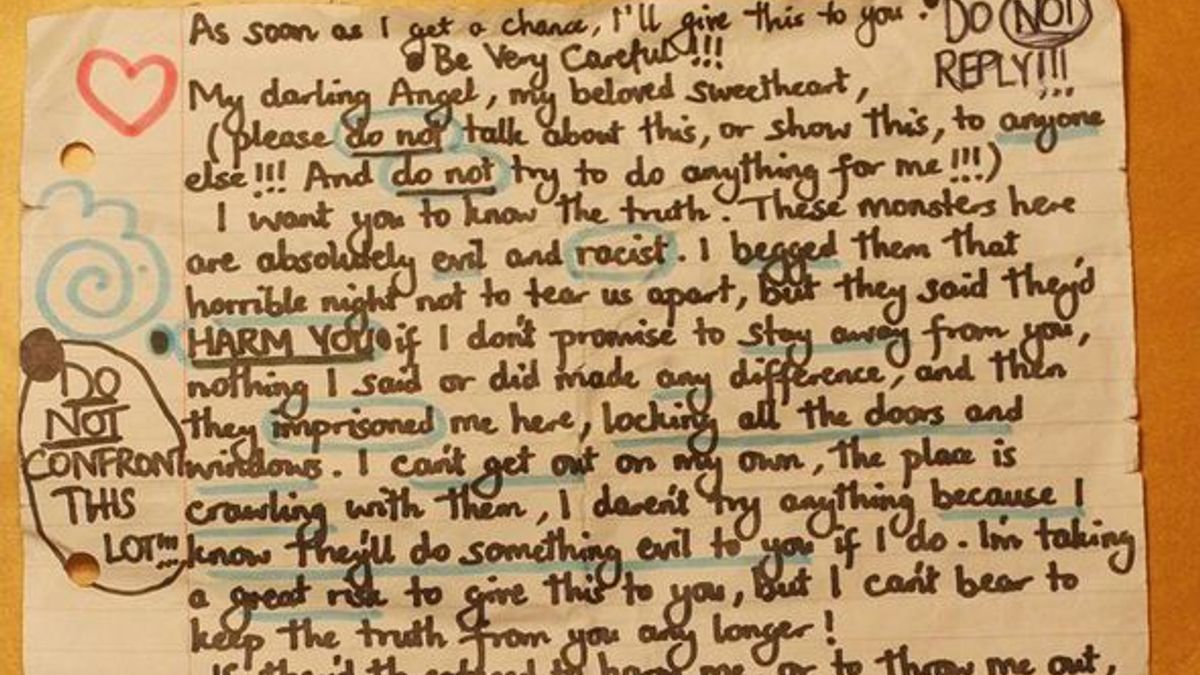 As soon as I get a chance, I'll give this to you.
DO NOT
REPLY!!!
Be Very Careful!!!
My darling Angel, my beloved sweetheart,
(please do not talk about this, or show this, to anyone
else!!! And do not try to do anything for me!!!)
I want you to know the truth. These monsters here
are absolutely evil and racist. I begged them that
horrible night not to tear us apart, but they said they'd
HARM YOU if I don't promise to stay away from you,
nothing I said or did made any difference, and then
they imprisoned me here, locking all the doors and
windows. I can't get out on my own, the place is
crawling with them, I daren't try anything because I
know they'll do something evil to you if I do. I'm taking
a great risk to give this to you, but I can't bear to
keep the truth from you any longer!
DO
NOT
CONFRONT
THIS
LOT!!!
to harm me, or to throw me out,